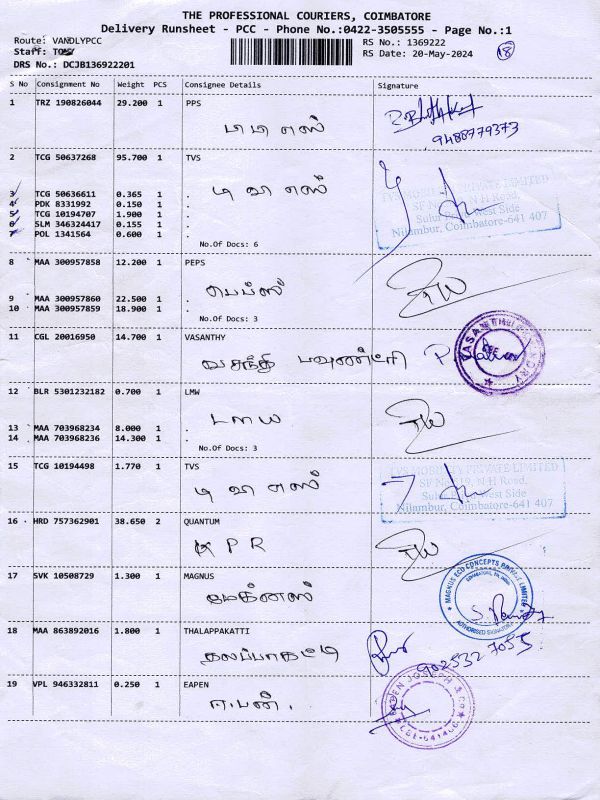 THE PROFESSIONAL COURIERS, COIMBATORE
Delivery Runsheet - PCC - Phone No.:0422-3505555 - Page No.:1
Route: VANDLYPCC RS No.: 1369222
Staff: RS Date: 20-May-2024 18
DRS No.: DCJB136922201
S No Consignment No Weight PCS Consignee Details Signature
1 TRZ 190826044 29.200 1 PPS
பி பி எஸ்
9488779373
2 TCG 50637268 95.700 1 TVS
டி வி எஸ்
TVS MOBILITY PRIVATE LIMITED
3 TCG 50636611 0.365 1 .
4 PDK 8331992 0.150 1 .
5 TCG 10194707 1.900 1 .
6 SLM 346324417 0.155 1 .
7 POL 1341564 0.600 1 .
Nilambur, Coimbatore-641 407
No.Of Docs: 6
8 MAA 300957858 12.200 1 PEPS
பெப்ஸ்
9 MAA 300957860 22.500 1 .
10 MAA 300957859 18.900 1 .
No.Of Docs: 3
11 CGL 20016950 14.700 1 VASANTHY
வசந்தி பவுண்ட்ரி
12 BLR 5301232182 0.700 1 LMW
13 MAA 703968234 8.000 1 .
14 MAA 703968236 14.300 1 .
No.Of Docs: 3
15 TCG 10194498 1.770 1 TVS
டி வி எஸ்
TVS MOBILITY PRIVATE LIMITED
Nilambur, Coimbatore-641 407
16 HRD 757362901 38.650 2 QUANTUM
K P R
17 SVK 10508729 1.300 1 MAGNUS
மேக்னஸ்
MAGNUS ECO CONCEPTS PRIVATE LIMITED
AUTHORISED SIGNATORY
18 MAA 863892016 1.800 1 THALAPPAKATTI
தலப்பாகட்டி
902532 7055
19 VPL 946332811 0.250 1 EAPEN
ஈ.பன்.